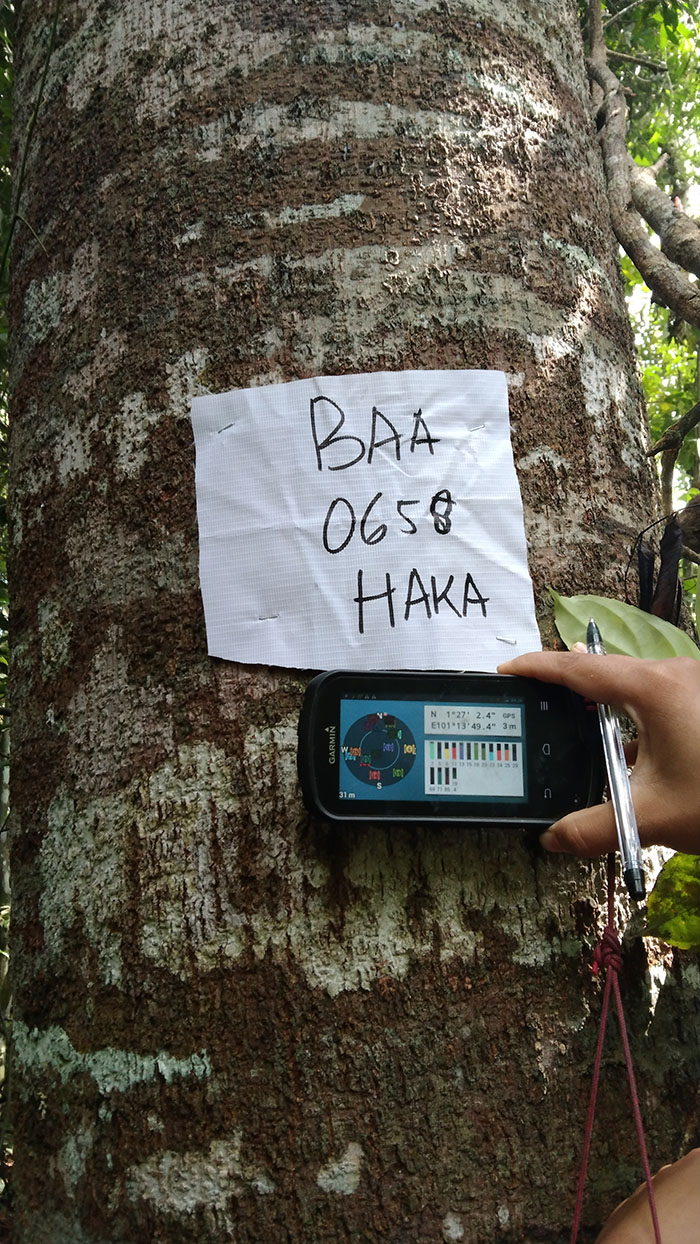 BAA
0658
HAKA
GARMIN
N 1°27' 2.4" GPS
E101°13'49.4" 3 m
N
W
S
31 m